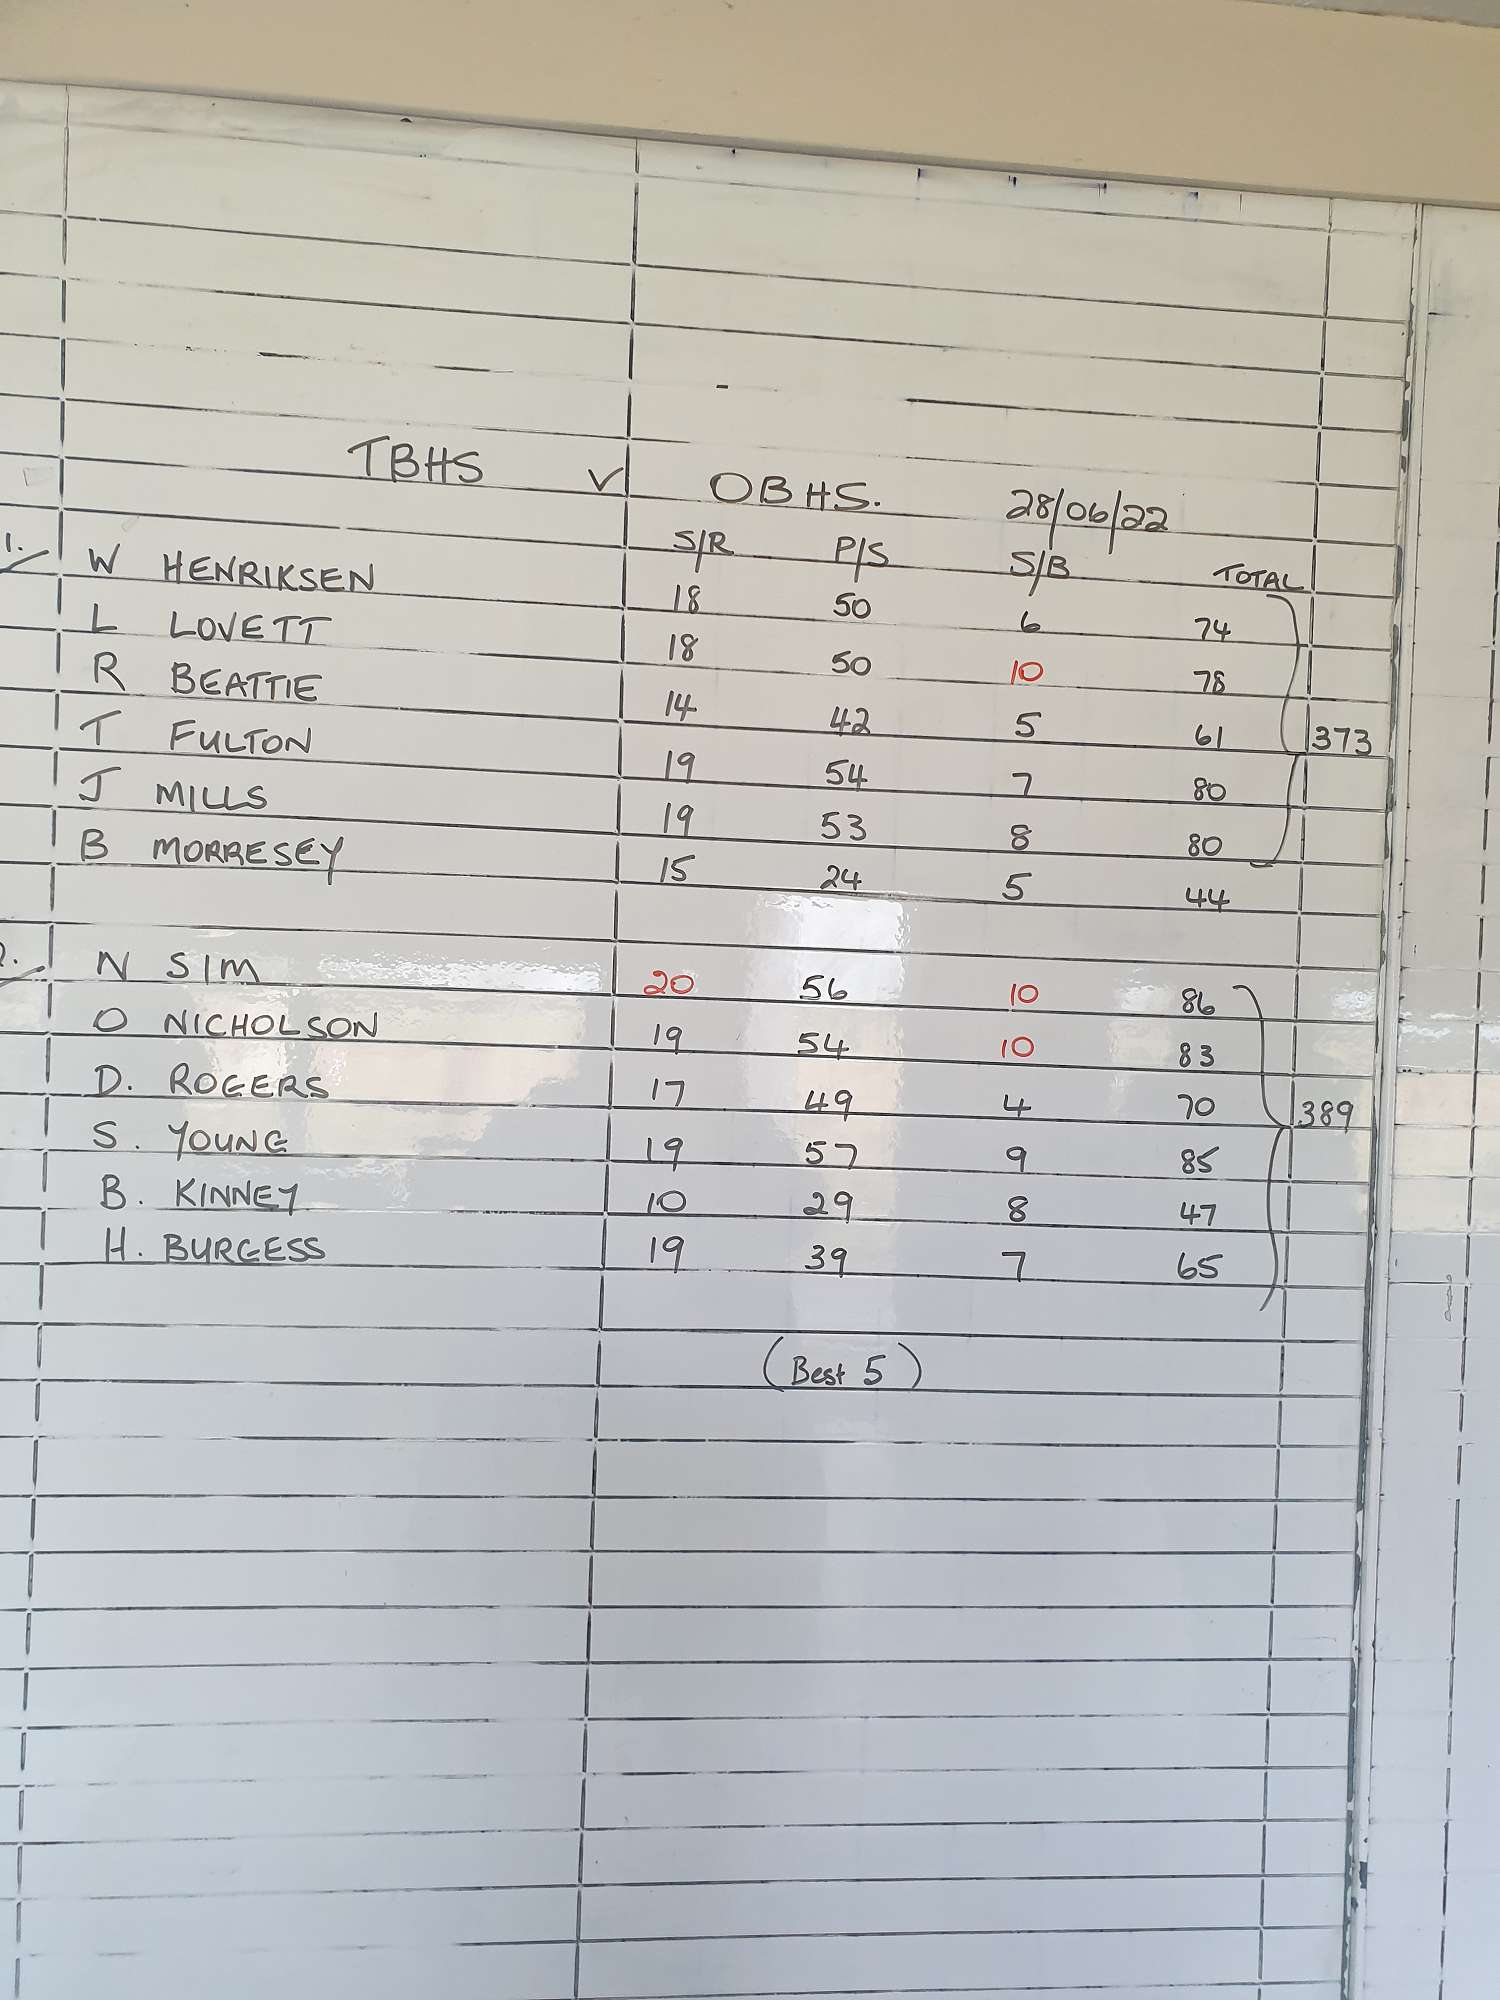 TBHS V OBHS. 28/06/22
S/R P/S S/B TOTAL
1. W HENRIKSEN 18 50 6 74
L LOVETT 18 50 10 78
R BEATTIE 14 42 5 61
373
T FULTON 19 54 7 80
J MILLS 19 53 8 80
B MORRESEY 15 24 5 44
2. N SIM 20 56 10 86
O NICHOLSON 19 54 10 83
D. ROGERS 17 49 4 70
389
S. YOUNG 19 57 9 85
B. KINNEY 10 29 8 47
H. BURGESS 19 39 7 65
(Best 5)